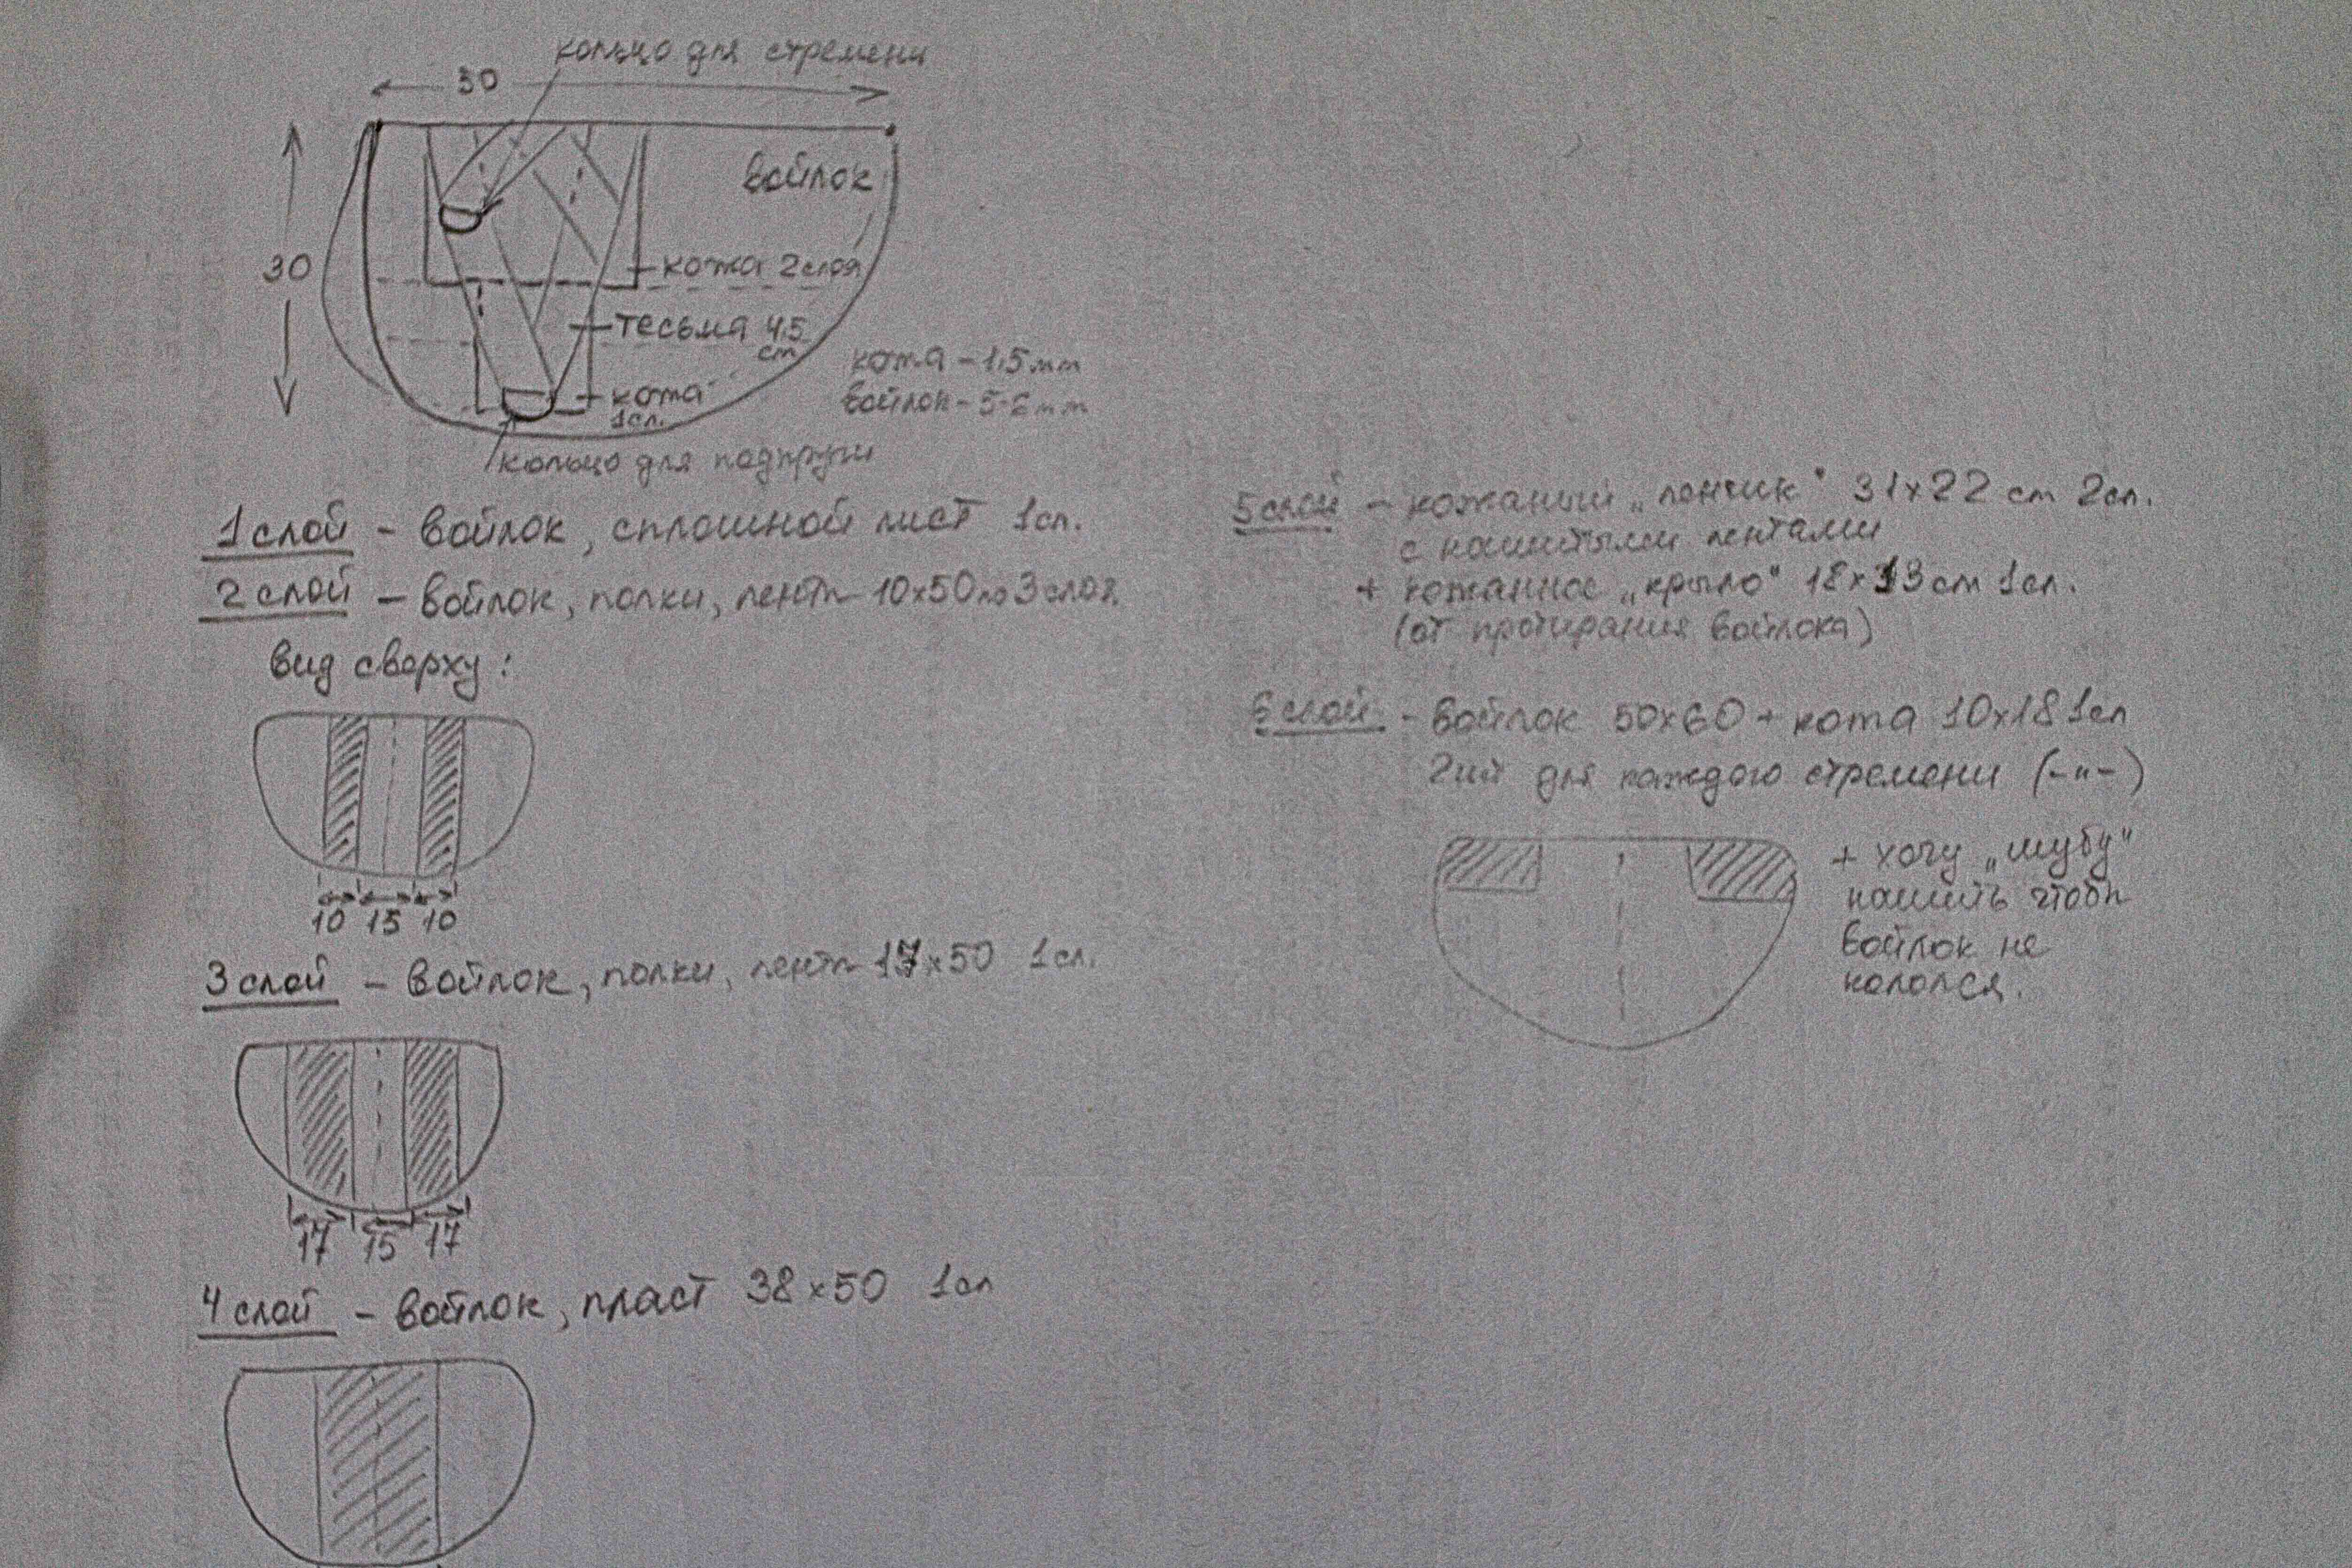 кольцо для стремени
30
войлок
30
кожа 2 слоя
тесьма 4,5
cm
кожа - 1,5 mm
войлок - 5-6 mm
кожа
1сл.
кольцо для подпруги
1 слой - войлок, сплошной лист 1сл.
2 слой - войлок, полки, лента 10x50 по 3 слоя
вид сверху:
10 15 10
3 слой - войлок, полки, лента 17x50 1сл.
17 15 17
4 слой - войлок, пласт 38x50 1сл
5 слой - кожаный „ленчик" 31x22 cm 2сл.
с нашитыми лентами
+ кожанное „крыло" 18x33 cm 1сл.
(от протирания войлока)
6 слой - войлок 50x60 + кожа 10x18 1сл
2шт для каждого стремени (-"-)
+ хочу „шубу"
нашить чтобы
войлок не
кололся.